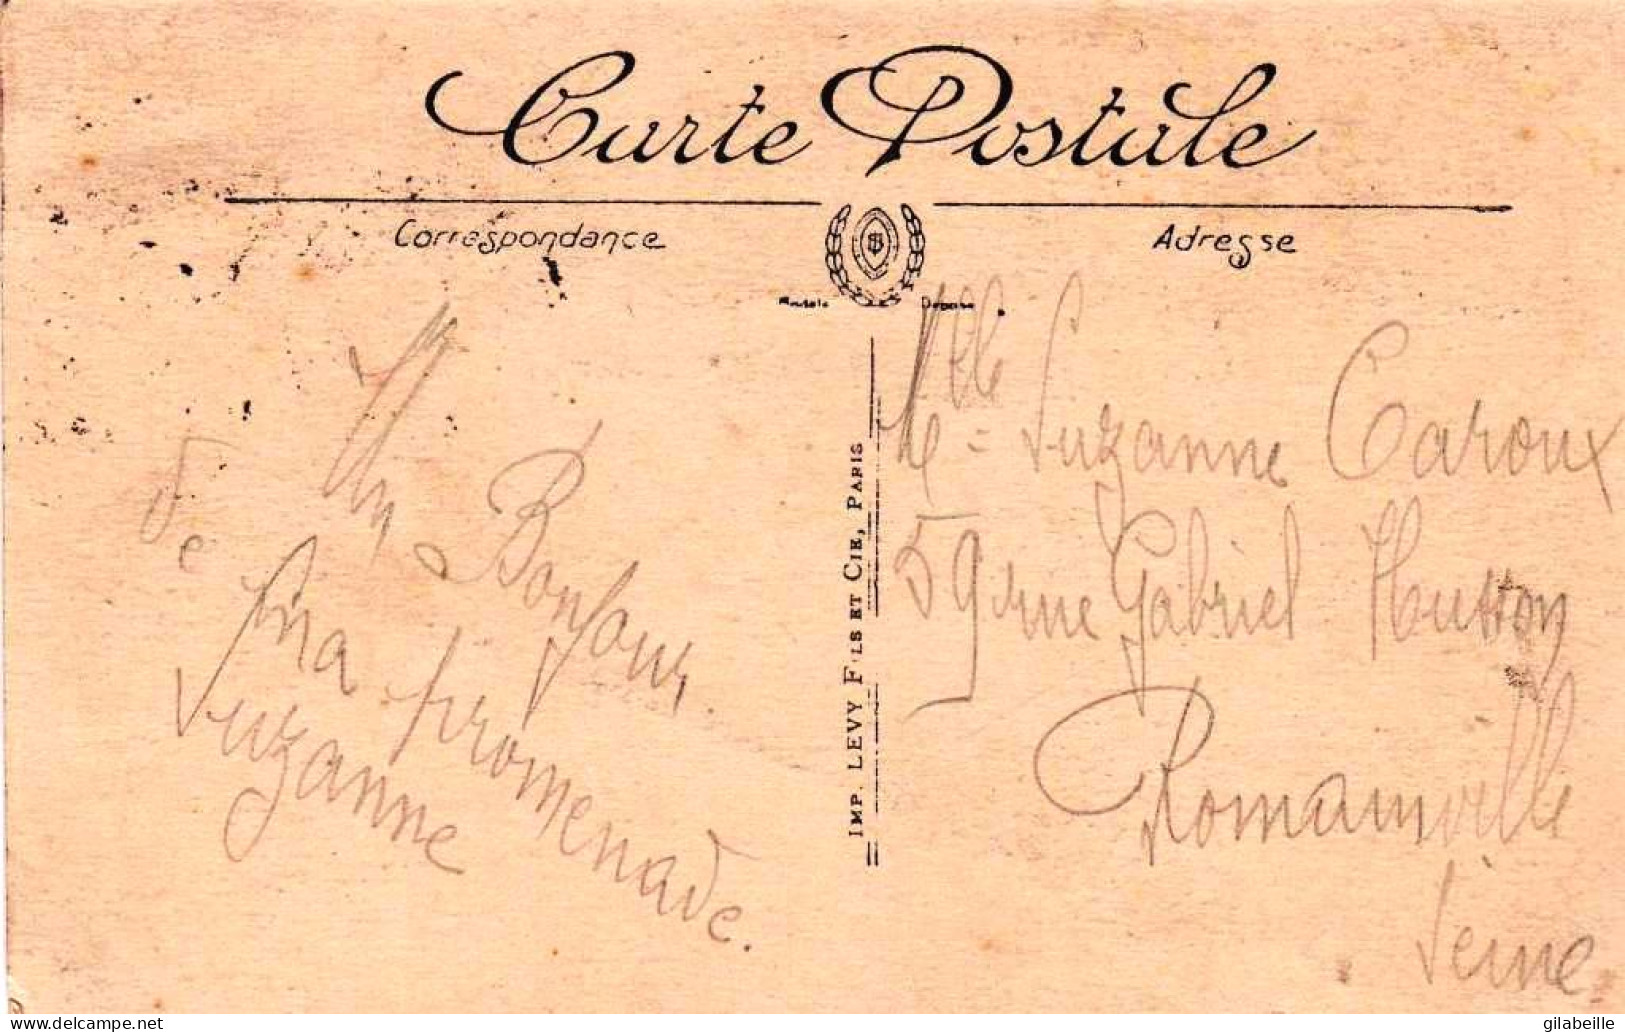 Carte Postale
Correspondance
Adresse
Un Bonjour
de ma promenade.
Suzanne
IMP. LEVY FILS ET CIE, PARIS
Melle Suzanne Caroux
59 rue Gabriel Husson
Romainville
Seine
delcampe.net
gilabeille